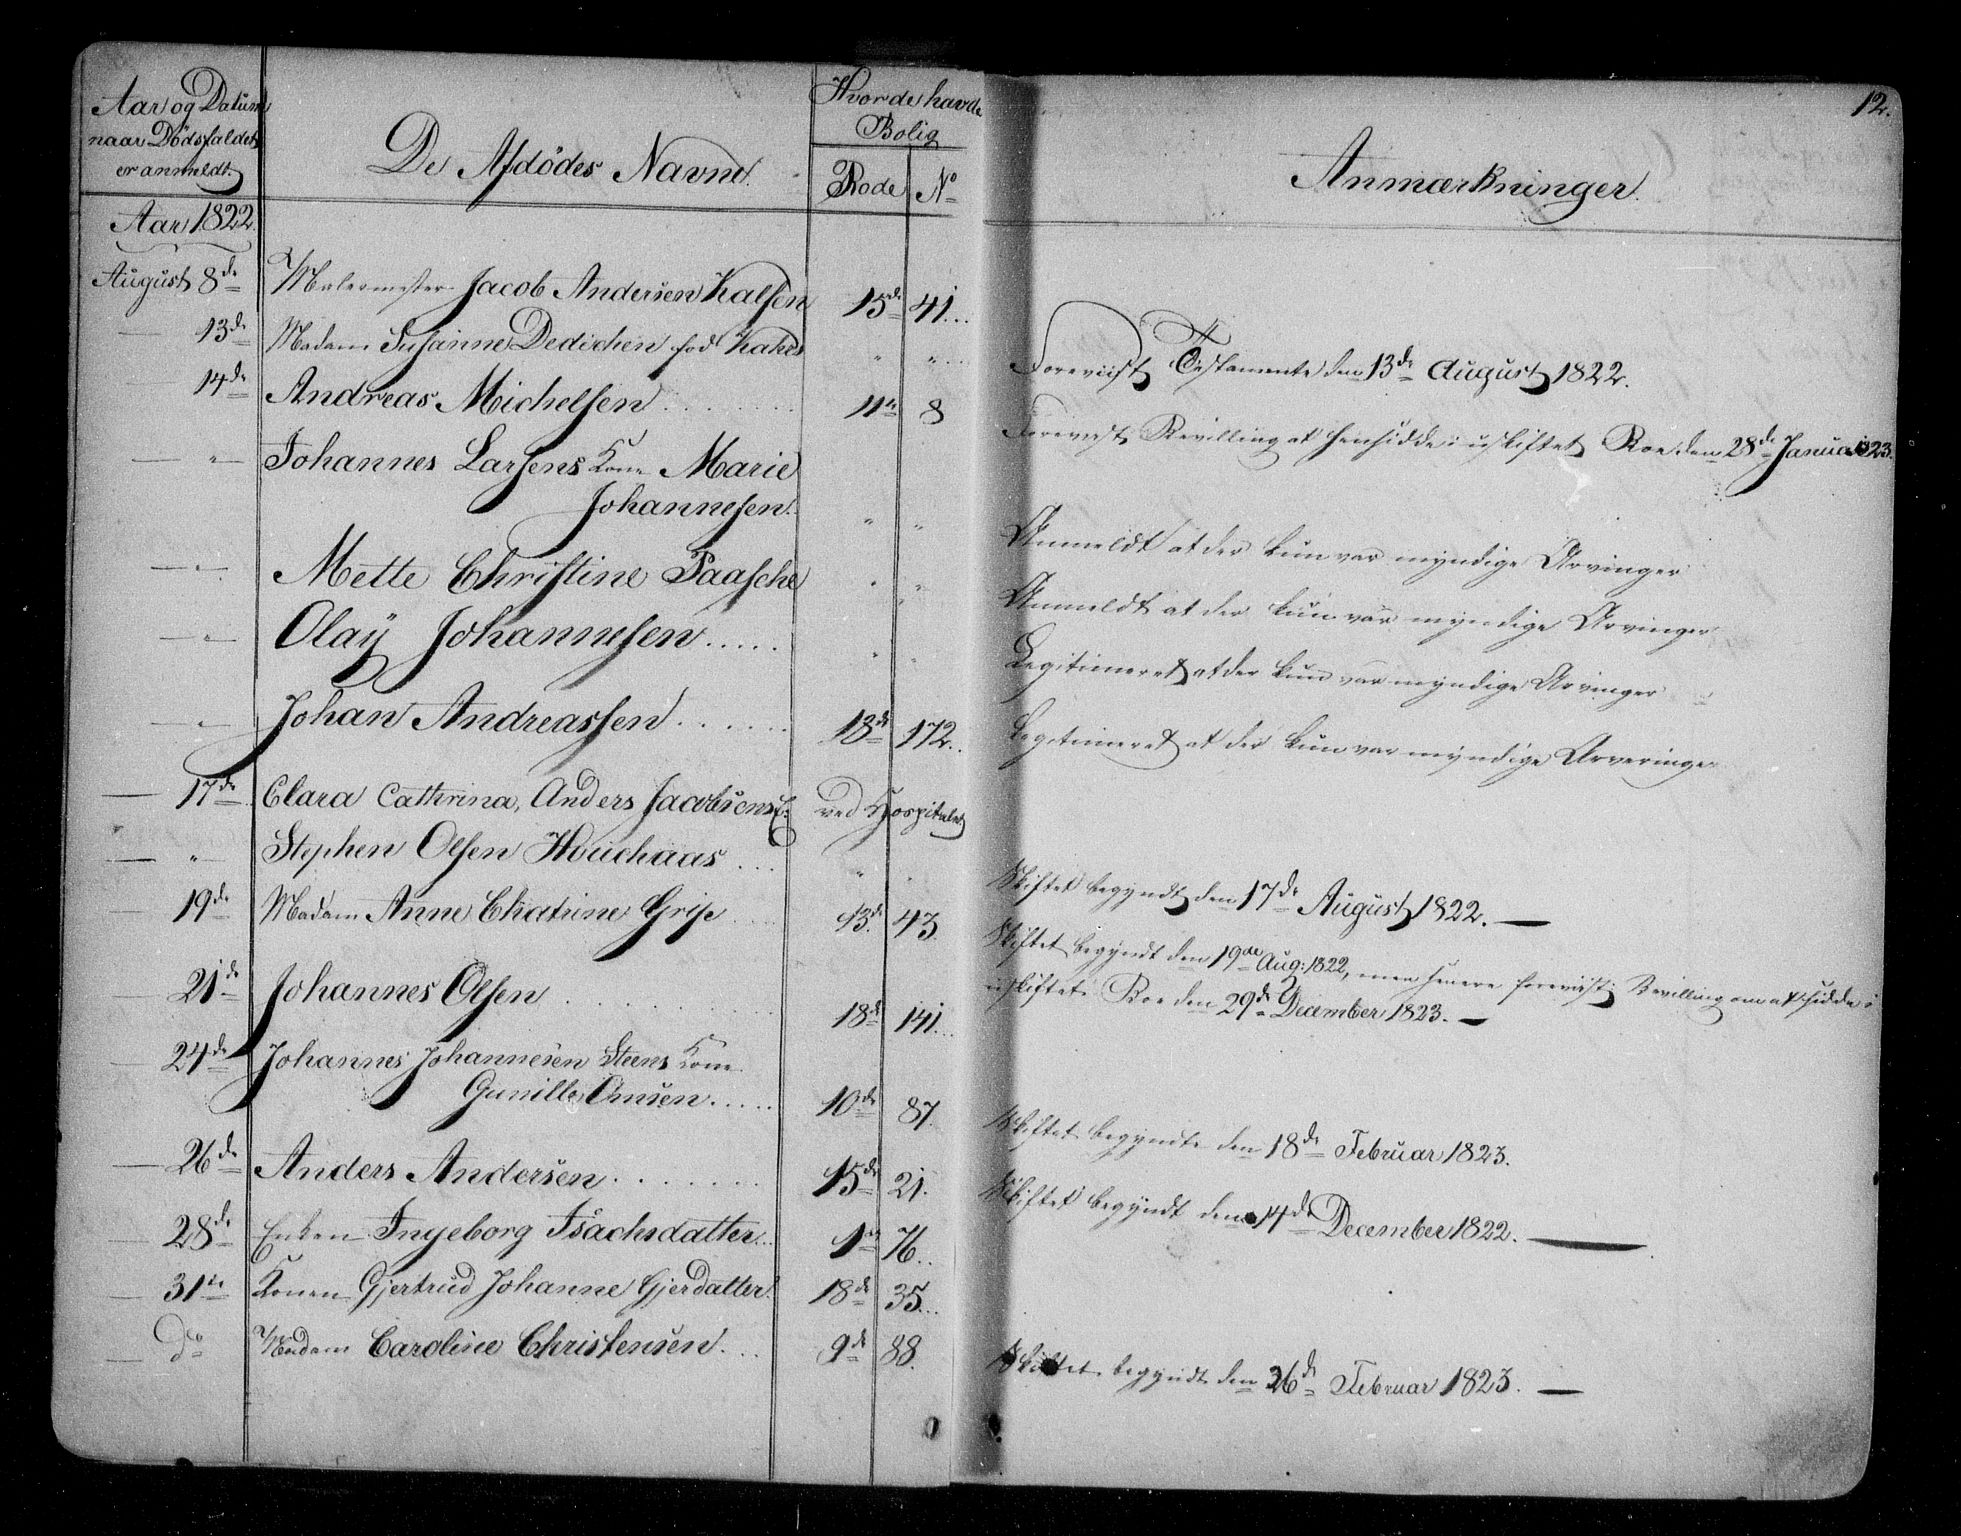 Aar og Datum
naar Dödsfaldet
er anmeldt.
De Afdödes Navne.
Hvor de havde
Bolig
Rode No
12.
Anmærkninger.
Aar 1822.
August 8de Malermester Jacob Andersen Kalsen 15de 41...
— 13de Madam Susanne Dedichen fød Kahrs " "
Foreviist Testamente den 13de August 1822.
— 14de Andreas Michelsen 11te 8
Foreviist Bevilling at hensidde i uskiftet Boe den 28de Januar 1823.
— " — Johannes Larsens Kone Marie
Johannesen. " "
Anmeldt at der kun var myndige Arvinger
— " — Mette Christine Paasche " "
Anmeldt at der kun var myndige Arvinger
— " — Olay Johannesen..... " "
Legitimeret at der kun var myndige Arvinger
— " — Johan Andreassen..... 18de 172..
Legitimeret at der kun var myndige Arveringer
— 17de Clara Cathrina, Anders Jacobsens E: ved Hospitalet
— " Stephen Olsen Houchaas... " "
Skiftet begyndt den 17de August 1822. —
— 19de Madam Anne Chatrine Grip 13de 43.
Skiftet begyndt den 19de Aug: 1822, men senere foreviist Bevilling om at sidde i
uskiftet Boe den 29de December 1823. —
— 21de Johannes Olsen 18de 141...
— 24de Johannes Johannesen Steens Kone
Gunille Amsen..... 10de 87.
Skiftet begyndte den 18de Februar 1823.
— 26de Anders Andersen....... 15de 21.
Skiftet begyndt den 14de December 1822. —
— 28de Enken Ingeborg Isachsdatter.. 1ste 76..
— 31te Konen Gjertrud Johanne Gjerdatter. 18de 35...
— do Madam Caroline Christensen.... 9de 88.
Skiftet begyndt den 26de Februar 1823. —